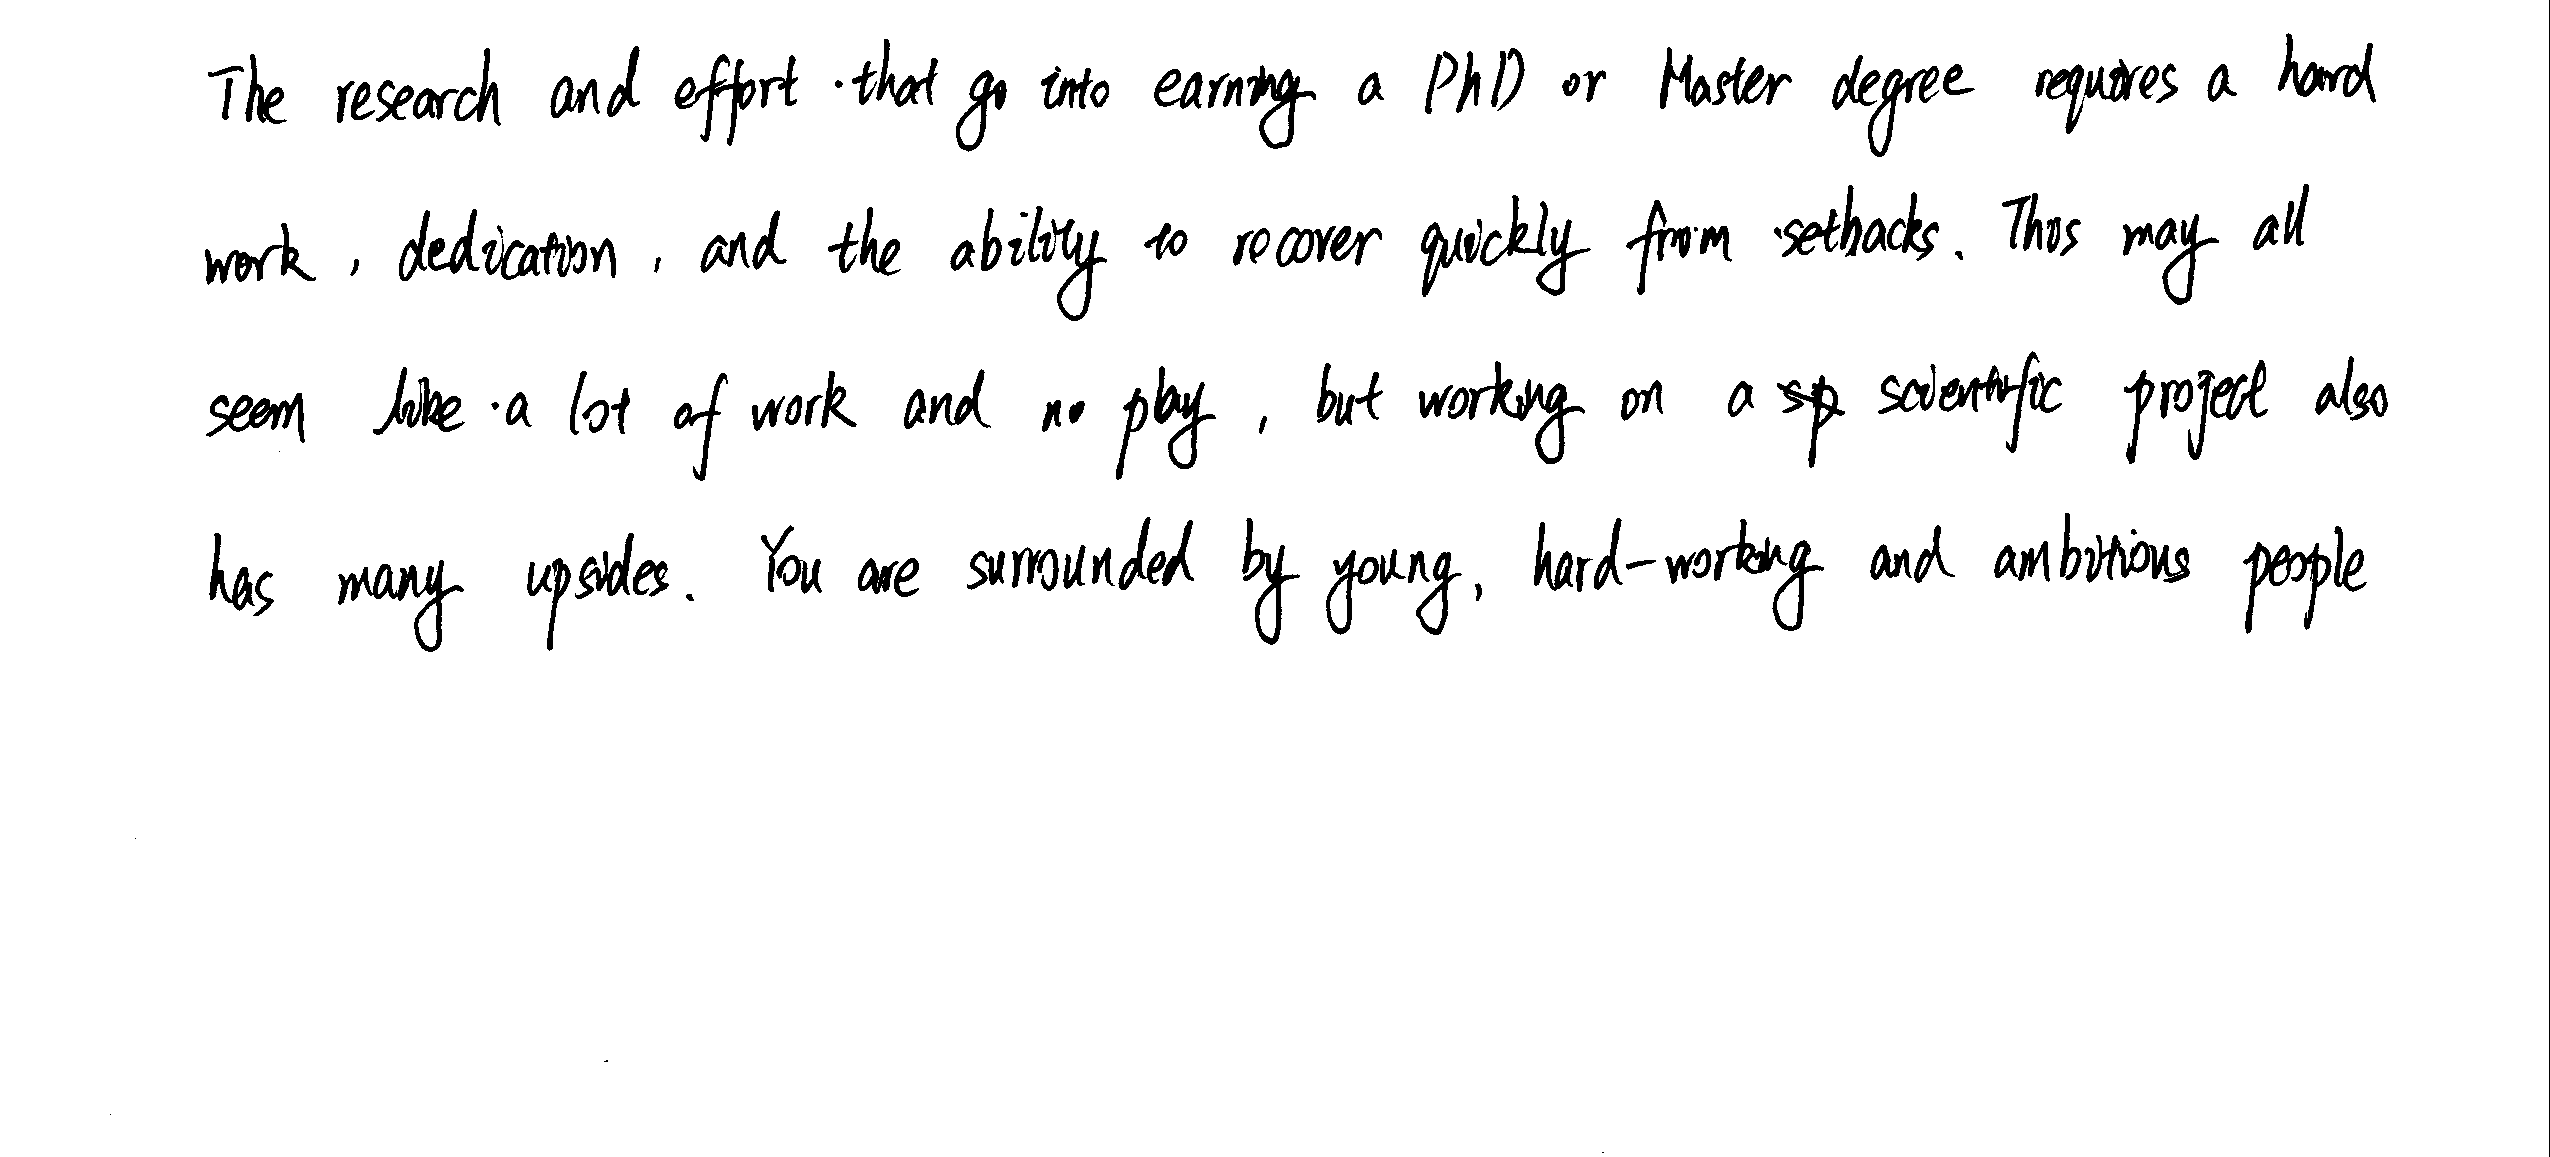 The research and effort that go into earning a PhD or Master degree requires a hard
work, dedication, and the ability to recover quickly from setbacks. This may all
seem like a lot of work and no play, but working on a sp scientific project also
has many upsides. You are surrounded by young, hard-working and ambitious people